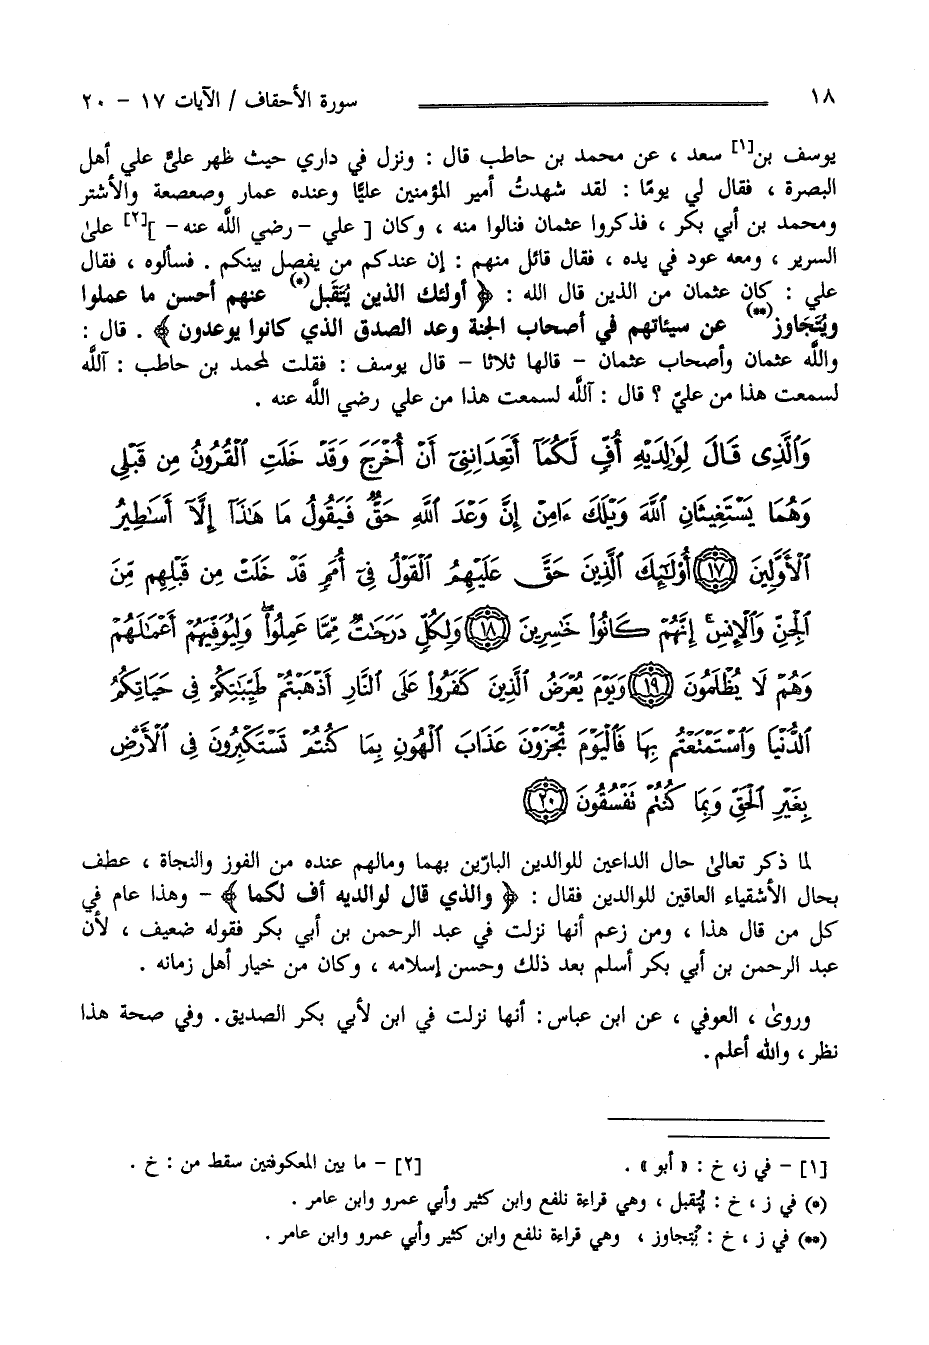 ١٨ سورة الأحقاف / الآيات ١٧ - ٢٠
يوسف بن[١] سعد ، عن محمد بن حاطب قال : ونزل في داري حيث ظهر عليٌّ علي أهل
البصرة ، فقال لي يومًا : لقد شهدتُ أمير المؤمنين عليًّا وعنده عمار وصعصعة والأشتر
ومحمد بن أبي بكر ، فذكروا عثمان فنالوا منه ، وكان [ علي - رضي اللَّه عنه - ][٢] علىٰ
السرير ، ومعه عود في يده ، فقال قائل منهم : إن عندكم من يفصل بينكم . فسألوه ، فقال
علي : كان عثمان من الذين قال الله : ﴿ أولئك الذين يُتَقَبل(*) عنهم أحسن ما عملوا
ويُتَجاوز(**) عن سيئاتهم في أصحاب الجنة وعد الصدق الذي كانوا يوعدون ﴾ . قال :
واللَّه عثمان وأصحاب عثمان - قالها ثلاثا - قال يوسف : فقلت لمحمد بن حاطب : آللَّه
لسمعت هذا من عليّ ؟ قال : آللَّه لسمعت هذا من علي رضي اللَّه عنه .
وَٱلَّذِى قَالَ لِوَٰلِدَيْهِ أُفٍّ لَّكُمَآ أَتَعِدَانِنِىٓ أَنْ أُخْرَجَ وَقَدْ خَلَتِ ٱلْقُرُونُ مِن قَبْلِى
وَهُمَا يَسْتَغِيثَانِ ٱللَّهَ وَيْلَكَ ءَامِنْ إِنَّ وَعْدَ ٱللَّهِ حَقٌّ فَيَقُولُ مَا هَٰذَآ إِلَّآ أَسَٰطِيرُ
ٱلْأَوَّلِينَ ١٧ أُو۟لَٰٓئِكَ ٱلَّذِينَ حَقَّ عَلَيْهِمُ ٱلْقَوْلُ فِىٓ أُمَمٍ قَدْ خَلَتْ مِن قَبْلِهِم مِّنَ
ٱلْجِنِّ وَٱلْإِنسِ ۖ إِنَّهُمْ كَانُوا۟ خَٰسِرِينَ ١٨ وَلِكُلٍّ دَرَجَٰتٌ مِّمَّا عَمِلُوا۟ ۖ وَلِيُوَفِّيَهُمْ أَعْمَٰلَهُمْ
وَهُمْ لَا يُظْلَمُونَ ١٩ وَيَوْمَ يُعْرَضُ ٱلَّذِينَ كَفَرُوا۟ عَلَى ٱلنَّارِ أَذْهَبْتُمْ طَيِّبَٰتِكُمْ فِى حَيَاتِكُمُ
ٱلدُّنْيَا وَٱسْتَمْتَعْتُم بِهَا فَٱلْيَوْمَ تُجْزَوْنَ عَذَابَ ٱلْهُونِ بِمَا كُنتُمْ تَسْتَكْبِرُونَ فِى ٱلْأَرْضِ
بِغَيْرِ ٱلْحَقِّ وَبِمَا كُنتُمْ تَفْسُقُونَ ٢٠
لما ذكر تعالىٰ حال الداعين للوالدين البارّين بهما ومالهم عنده من الفوز والنجاة ، عطف
بحال الأشقياء العاقين للوالدين فقال : ﴿ والذي قال لوالديه أف لكما ﴾ - وهذا عام في
كل من قال هذا ، ومن زعم أنها نزلت في عبد الرحمن بن أبي بكر فقوله ضعيف ، لأن
عبد الرحمن بن أبي بكر أسلم بعد ذلك وحسن إسلامه ، وكان من خيار أهل زمانه .
وروىٰ ، العوفي ، عن ابن عباس : أنها نزلت في ابن لأبي بكر الصديق . وفي صحة هذا
نظر ، والله أعلم .
[١] - في ز، خ : « أبو » . [٢] - ما بين المعكوفتين سقط من : خ .
(*) في ز ، خ : يُتَقبل ، وهي قراءة نلفع وابن كثير وأبي عمرو وابن عامر .
(**) في ز ، خ : يُتَجاوز ، وهي قراءة نلفع وابن كثير وأبي عمرو وابن عامر .